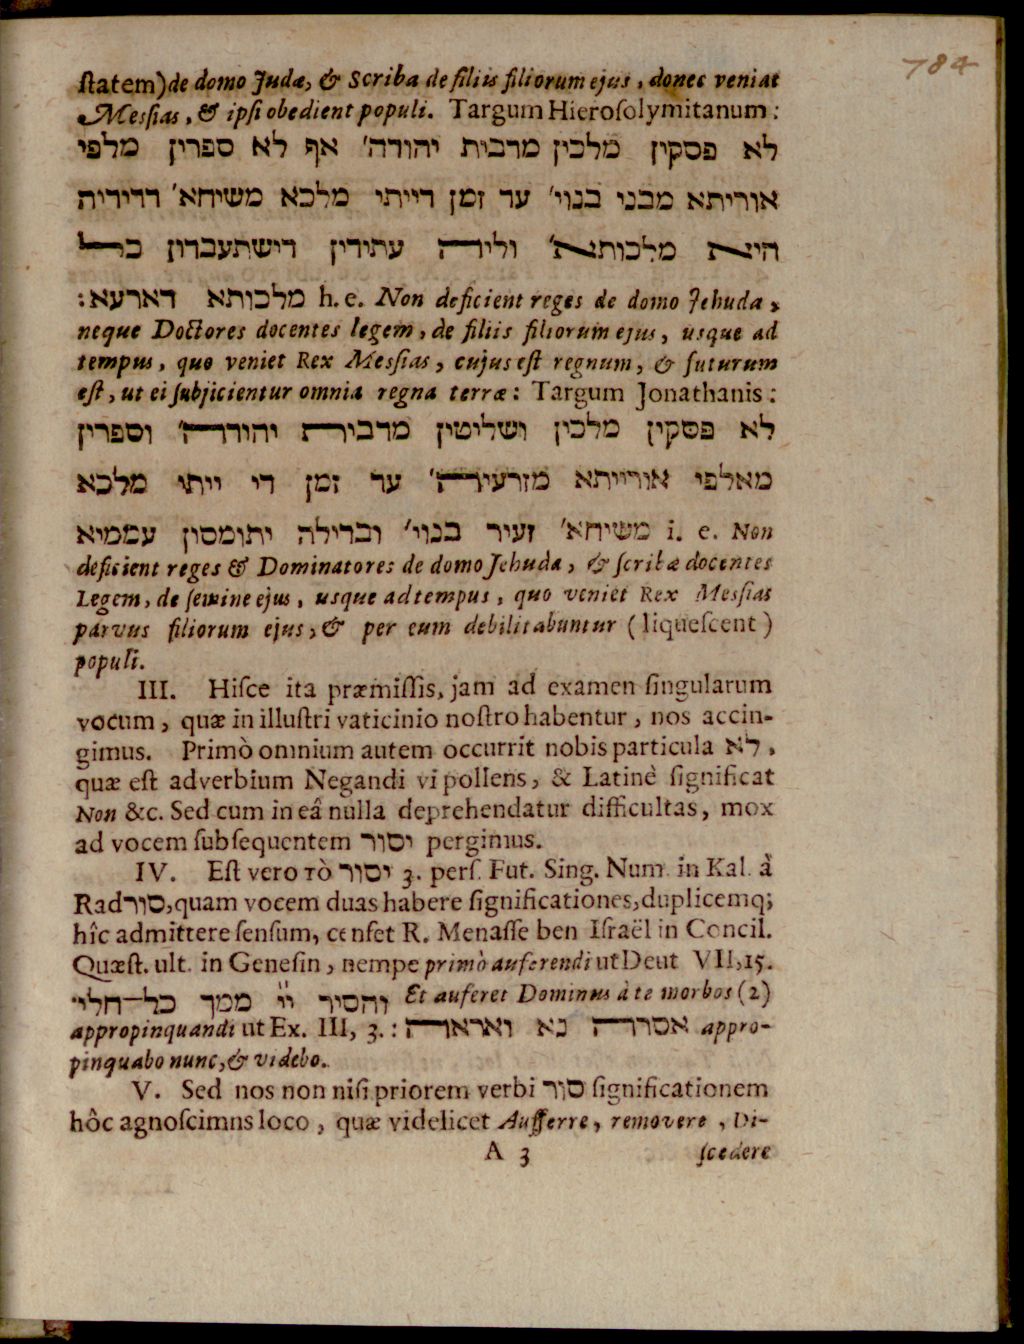 784
ſtatem) de domo Judæ, & Scriba de filiis filiorum ejus, donec veniat
Mesſias, & ipſi obedient populi. Targum Hieroſolymitanum:
לא פסקין מלכין מרבית יהודה׳ אף לא ספרין מלפי
אוריתא מבני בנוי׳ עד זמן דייתי מלכא משיחא׳ דדידיה
היא מלכותא׳ וליה עתידין דישתעבדון כל
מלכותא דארעא: h. e. Non deficient reges de domo Jehuda,
neque Doctores docentes legem, de filiis filiorum ejus, usque ad
tempus, quo veniet Rex Mesſias, cujus eſt regnum, & futurum
eſt, ut ei ſubjicientur omnia regna terræ: Targum Jonathanis:
לא פסקין מלכין ושליטין מדבית יהודה׳ וספרין
מאלפי אורייתא מזרעיה׳ עד זמן די ייתי מלכא
משיחא׳ זעיר בנוי׳ ובדילה יתומסון עממיא i. e. Non
deficient reges & Dominatores de domo Jehuda, & ſcribæ docentes
Legem, de ſemine ejus, usque ad tempus, quo veniet Rex Mesſias
parvus filiorum ejus, & per eum debilitabuntur (liqueſcent)
populi.
III. Hiſce ita præmiſſis, jam ad examen ſingularum
vocum, quæ in illuſtri vaticinio noſtro habentur, nos accin-
gimus. Primò omnium autem occurrit nobis particula לא,
quæ eſt adverbium Negandi vi pollens, & Latinè ſignificat
Non &c. Sed cum in eâ nulla deprehendatur difficultas, mox
ad vocem ſubſequentem יסור pergimus.
IV. Eſt vero τὸ יסור 3. perſ. Fut. Sing. Num. in Kal. à
Rad סור, quam vocem duas habere ſignificationes, duplicemq;
hîc admittere ſenſum, cenſet R. Menaſſe ben Iſraël in Concil.
Quæſt. ult. in Geneſin, nempe primò auferendi ut Deut VII, 15.
והסיר יי ממך כל-חלי׳ Et auferet Dominus à te morbos (2)
appropinquandi ut Ex. III, 3.: אסורה נא ואראה appro-
pinquabo nunc, & videbo.
V. Sed nos non niſi priorem verbi סור ſignificationem
hôc agnoſcimns loco, quæ videlicet Aufferre, removere, Di-
A 3 ſcedere